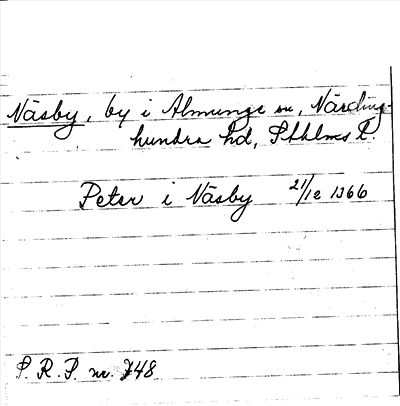 Näsby, by i Almunge sn, Närding-
hundra hd, Sthlms l.
Peter i Näsby 21/12 1366
S. R. P. nr. 748